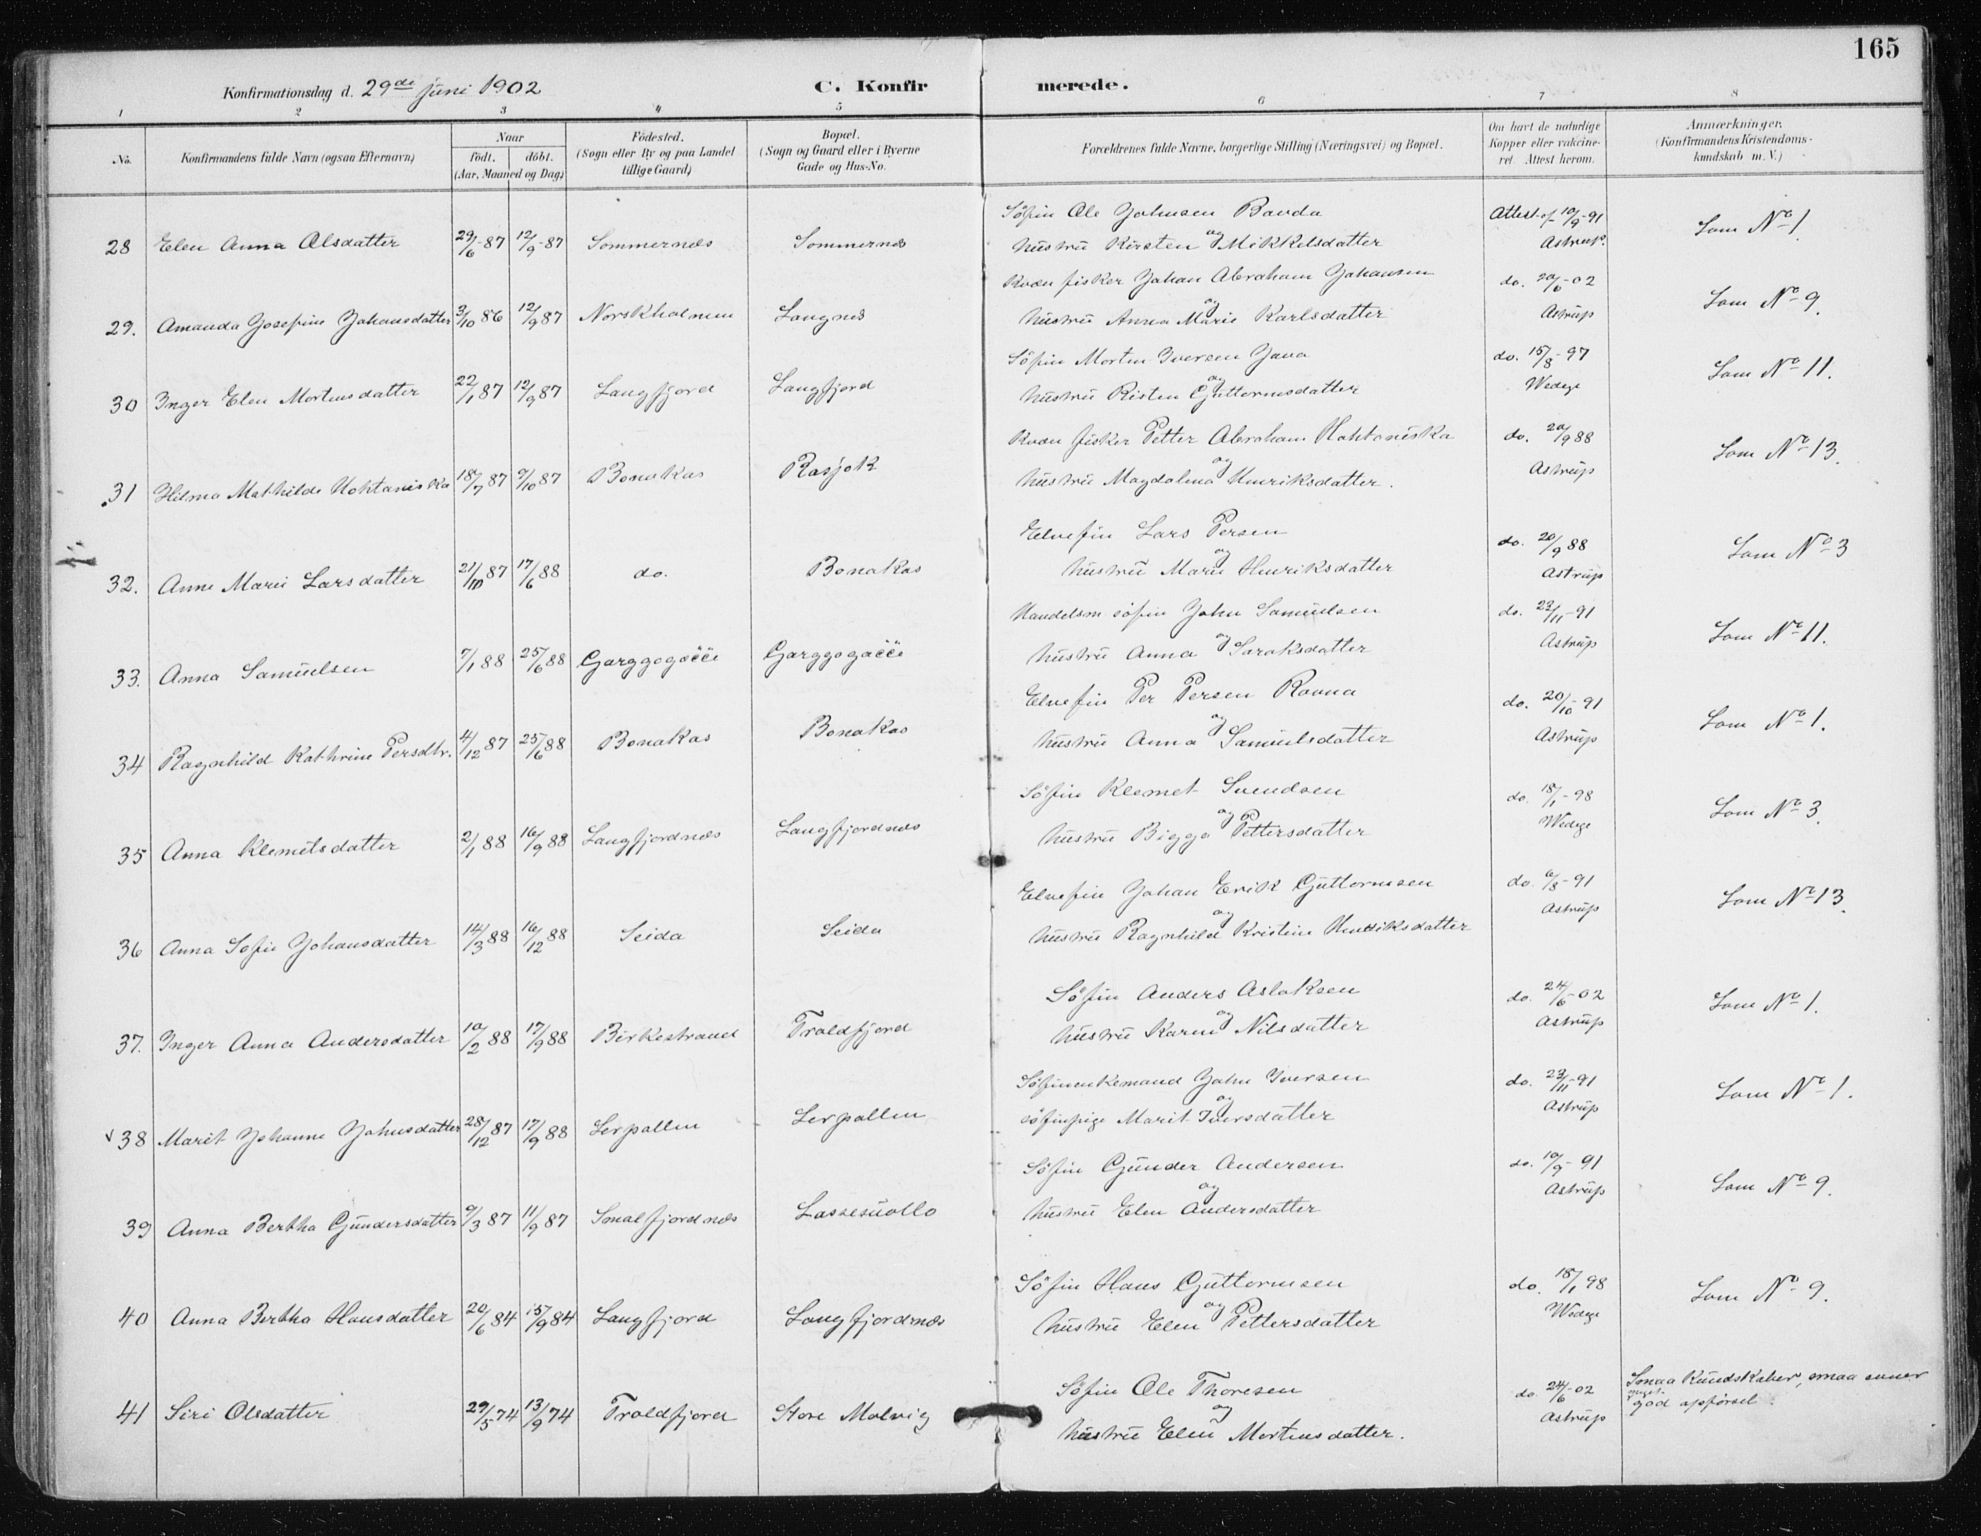 165
Konfirmationsdag d. 29de Juni 1902 C. Konfirmerede.
1 2 3 4 5 6 7 8
No. Konfirmandens fulde Navn (ogsaa Efternavn) Naar født. døbt. (Aar, Maaned og Dag) Fødested. (Sogn eller By og paa Landet tillige Gaard) Bopæl. (Sogn og Gaard eller i Byerne Gade og Hus-No. Forældrenes fulde Navne, borgerlige Stilling (Næringsvei) og Bopæl. Om havt de naturlige Kopper eller vakcineret. Attest herom. Anmærkninger. (Konfirmandens Kristendomskundskab m. V.)
28 Elen Anna Olsdatter 29/6-87 12/9-87 Sommernes Sommernes Søfin Ole Johnsen Bavda og Attest af 10/9-91 Som No 1.
hustru Kirsten Mikkelsdatter Astrup.
29. Amanda Josefine Johansdatter 3/10 86 12/9 87 Norskholmen Langnes Kvæn fisker Johan Abraham Johansen og do. 20/6-02 Som No 9.
hustru Anna Marie Karlsdatter Astrup
30 Inger Elen Mortensdatter 22/1 87 12/9 87 Langfjord Langfjord Søfin Morten Iversen Java og do. 15/8-97 Som No 11.
hustru Risten Guttormsdatter Wedege
31 Hilma Mathilde Hohtaniska 18/7 87 9/10 87 Bonakas Rasjok Kvæn fisker Petter Abraham Hohtaniska og do. 20/9 88 Som No 13.
hustru Magdalena Henriksdatter. Astrup
32. Anne Marie Larsdatter 21/10 87 17/6 88 do. Bonakas Elvefin Lars Persen og do. 20/9 88 Som No 3
hustru Marie Henriksdatter Astrup
33. Anna Samuelsen 7/1 88 25/6 88 Garggogæčči Garggogæčči Handelsm søfin John Samuelsen og do. 23/11-91 Som No 11.
hustru Anna Saraksdatter Astrup
34 Ragnhild Kathrine Persdtr. 4/12 87 25/6 88 Bonakas Bonakas Elvefin Per Persen Ravna og do. 20/10-91 Som No 1.
hustru Anna Samuelsdatter Astrup
35 Anna Klemetsdatter 2/1 88 16/9 88 Langfjordnes Langfjordnes Søfin Klemet Svendsen og do. 18/1-98 Som No 3.
hustru Bigga Pettersdatter Wedege
36 Anna Sofie Johansdatter 14/3 88 16/12 88 Seida Seida Elvefin Johan Erik Guttormsen og do. 6/8-91 Som No 13.
hustru Ragnhild Kristine Henriksdatter Astrup
37. Inger Anna Andersdatter 10/2 88 17/9 88 Birkestrand Troldfjord Søfin Anders Aslaksen og do. 24/6-02 Som No 1.
hustru Karen Nilsdatter Astrup
38 Marit Johanne Johnsdatter 28/12 87 17/9 88 Lerpollen Lerpollen Søfinenkemand John Iversen og do. 23/11-91 Som No 1.
søfinpige Marit Iversdatter Astrup
39 Anna Bertha Gundersdatter 9/3 87 11/9 87 Smalfjordnes Lassesuollo Søfin Gunder Andersen og do. 10/9-91 Som No 9.
hustru Elen Andersdatter Astrup
40 Anna Bertha Hansdatter 20/6 84 15/9 84 Langfjord Langfjordnes Søfin Hans Guttormsen og do. 18/1 98 Som No 9.
hustru Elen Pettersdatter Wedege
41 Siri Olsdatter 29/5 74 13/9 74 Troldfjord Store Molvig Søfin Ole Thoresen og do. 24/6-02 Smaa Kundskaber, smaa evner
hustru Elen Mortensdatter. Astrup meget god opførsel.